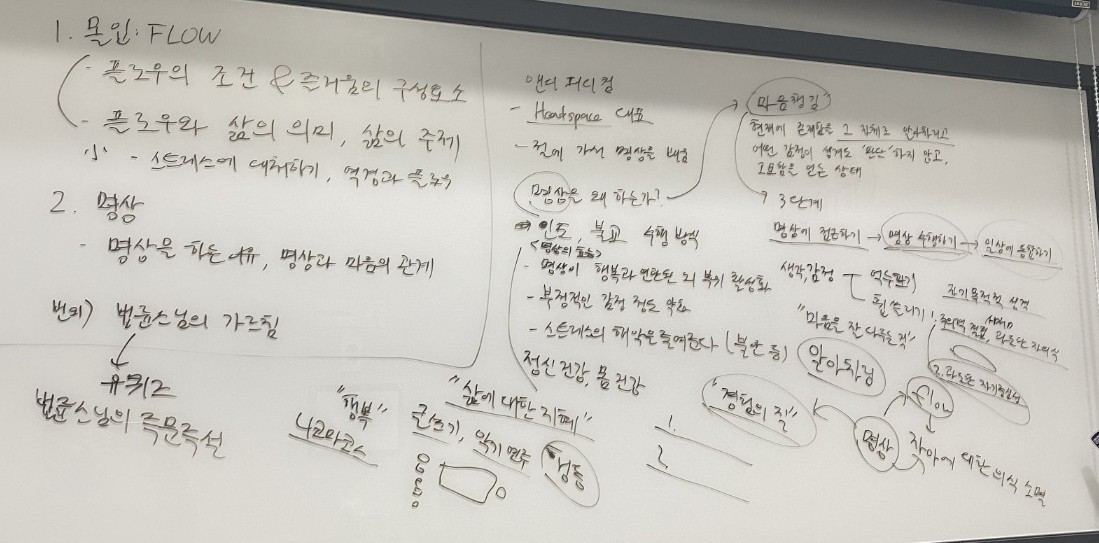 1. 몰입: FLOW
- 플로우의 조건 & 즐거움의 구성요소
- 플로우와 삶의 의미, 삶의 주제
- 스트레스에 대처하기, 역경과 플로우
2. 명상
- 명상을 하는 이유, 명상과 마음의 관계
번외) 법륜스님의 가르침
↓
유퀴즈
법륜스님의 즉문즉설
"행복"
니코마코스
앤디 퍼디컴
- Headspace 대표
- 절에 가서 명상을 배움
명상을 왜 하는가?
⇒ 인도, 불교 수행 방식
<명상의 효능>
- 명상이 행복과 연관된 뇌 부위 활성화
- 부정적인 감정 정도 약화
- 스트레스의 해악을 줄여준다 (불안 등)
정신 건강, 몸 건강
"삶에 대한 지혜"
글쓰기, 악기 연주
행동
→ "마음챙김"
현재에 존재함을 그 자체로 만나하려고
어떤 감정이 생겨도 '판단'하지 않고,
고요함을 얻는 상태
→ 3단계
명상에 접근하기 → 명상 수행하기 → 일상에 통합하기
생각, 감정
억누르기
휩쓸리기
"마음을 잘 다루는 것"
알아차림
자기목적적 성격
1. 과도한 자의식
2. 과도한 자기중심성
"경험의 질"
1.
2.
명상
Flow
↓
자아에 대한 의식 소멸